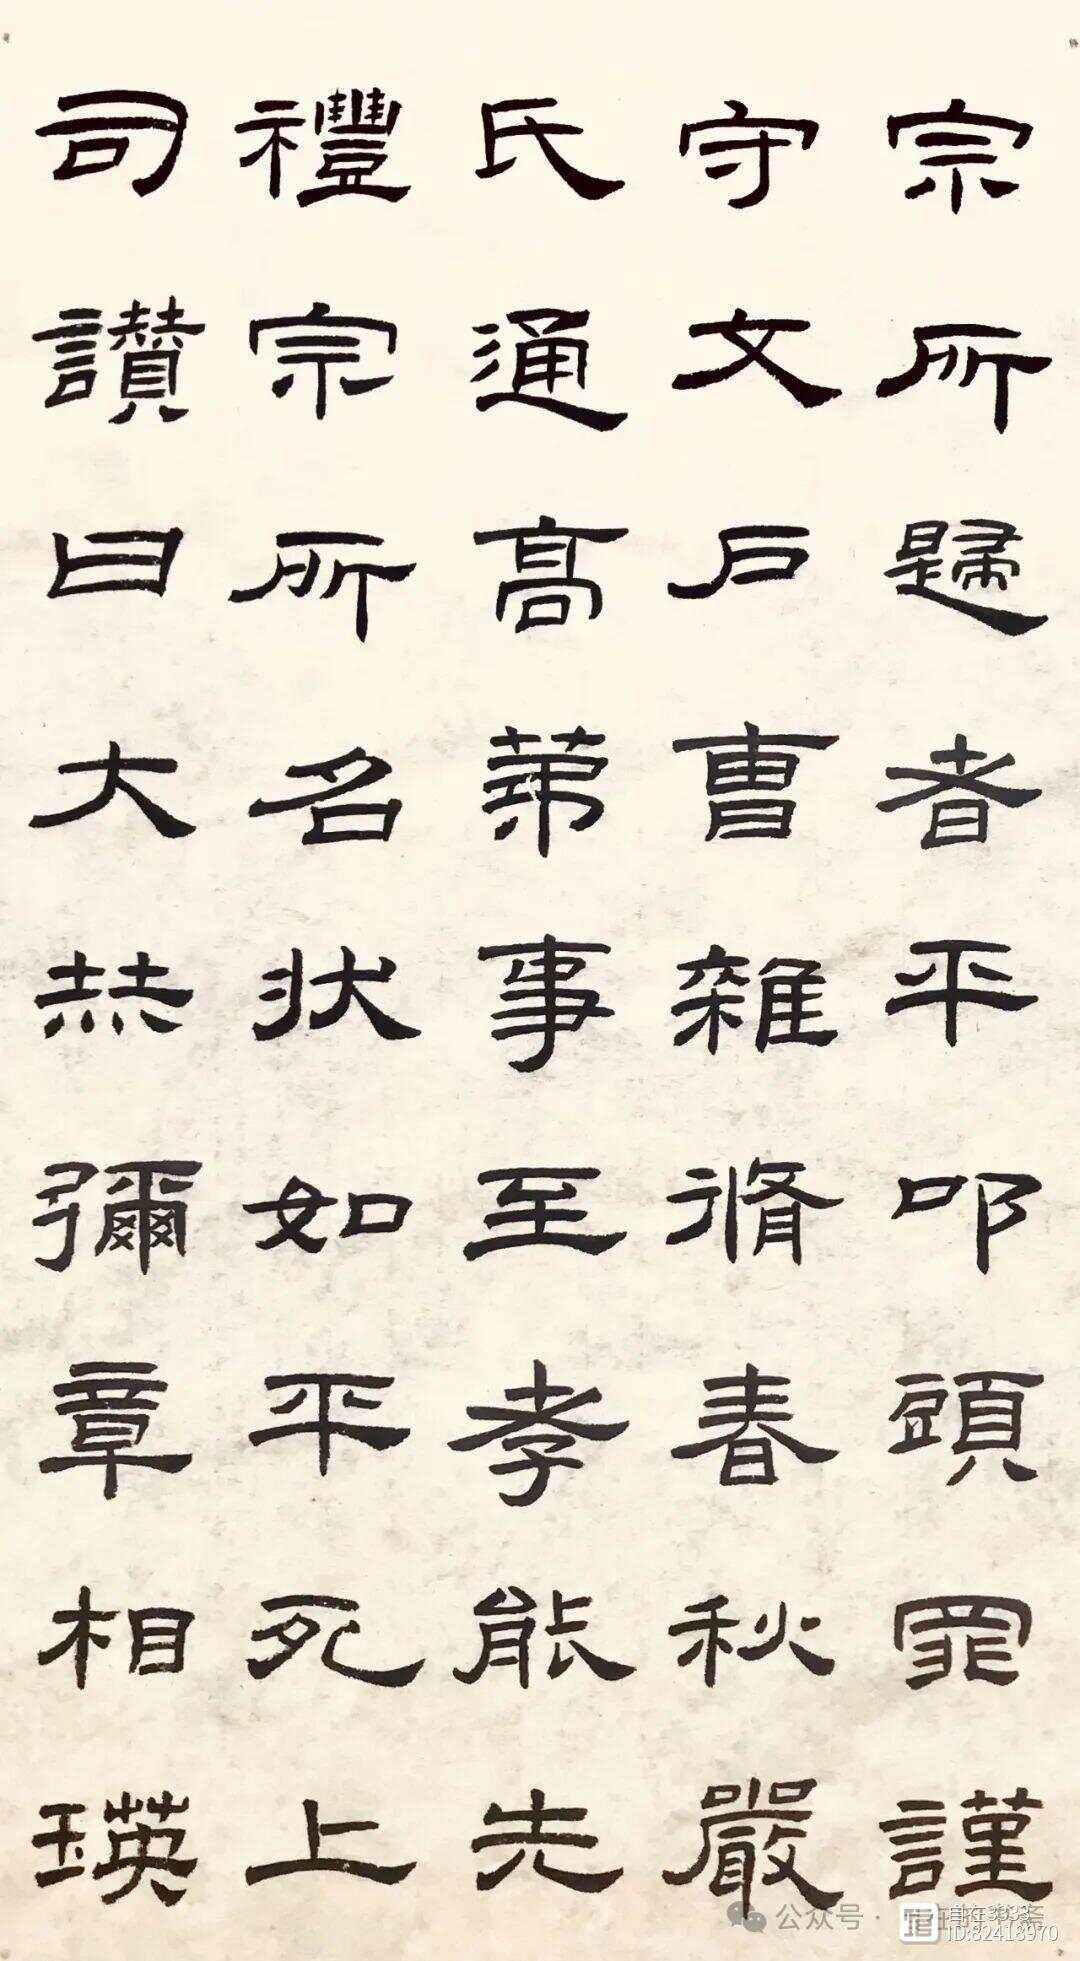 宗所歸者平叩頭罪謹
守文戶曹雜脩春秋嚴
氏通高第事至孝能先
禮宗所名狀如平死上
司讚曰大㷠彌章相瑛
公众号·
自在3333
ID:82418970